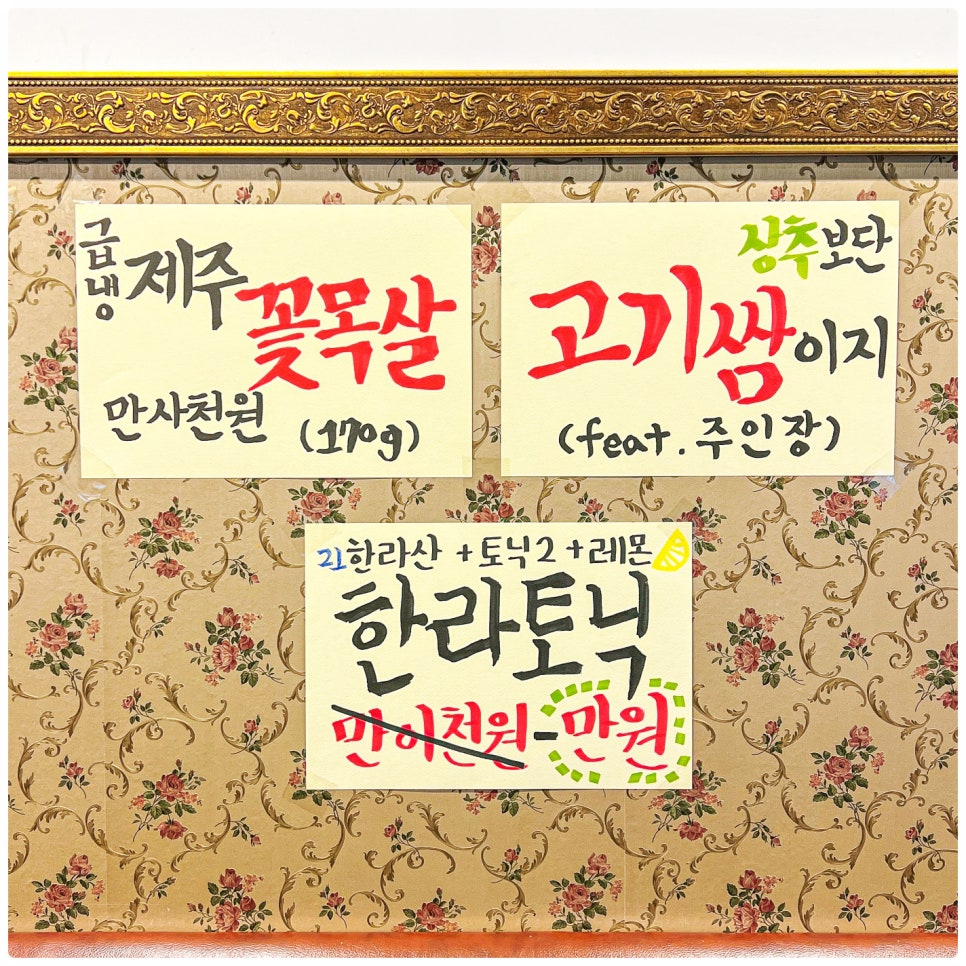 급냉 제주
꽃목살
만사천원 (170g)
상추보단
고기쌈이지
(feat. 주인장)
21한라산 +토닉2 +레몬
한라토닉
만이천원-만원